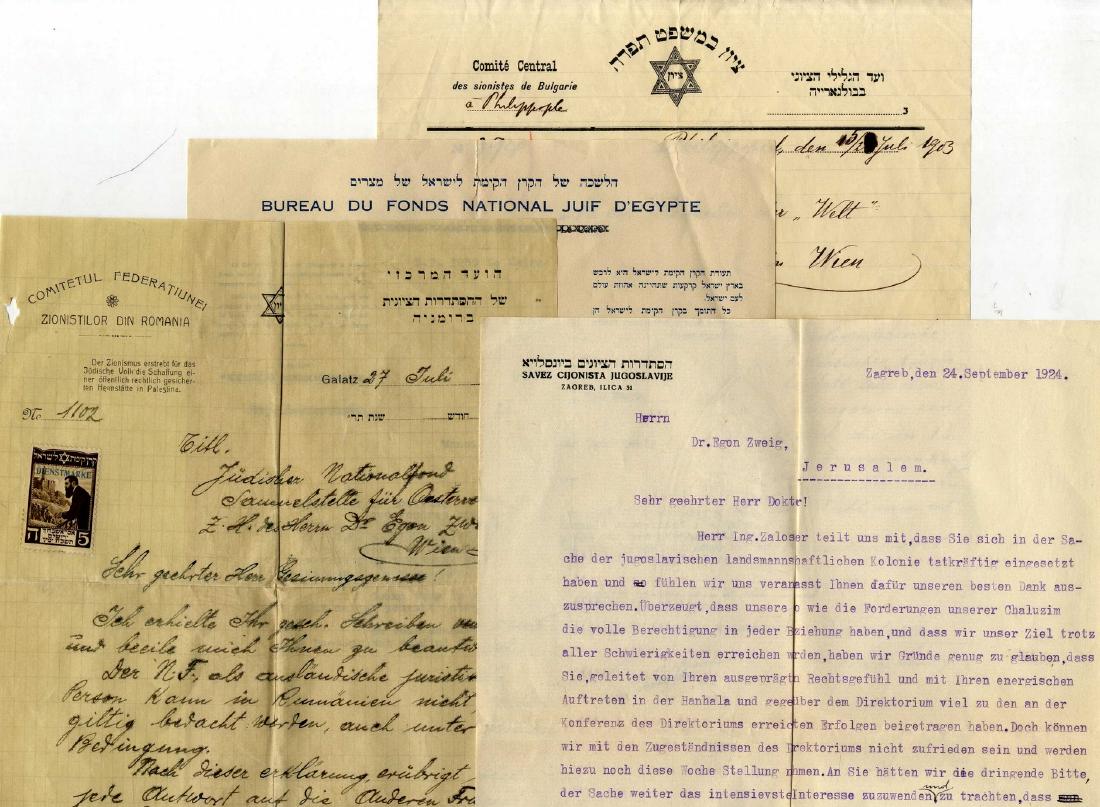 ציון במשפט תפדה
ציון
Comité Central
des sionistes de Bulgarie
à Philippople
ועד הגלילי הציוני
בבולגארייה
3
den Juli 1903
"Welt"
Wien
הלשכה של הקרן הקימת לישראל של מצרים
BUREAU DU FONDS NATIONAL JUIF D'EGYPTE
תעודת הקרן הקימת לישראל היא לרכש
בארץ ישראל קרקעות שתהיינה אחוזת עולם
לעם ישראל.
כל התומך בקרן הקימת לישראל הן
COMITETUL FEDERAŢIUNEI
ZIONIŞTILOR DIN ROMANIA
Der Zionismus erstrebt für das
Jüdische Volk die Schaffung ei-
ner öffentlich rechtlich gesicher-
ten Heimstätte in Palestina.
No 1102
הועד המרכזי
של ההסתדרות הציונית
ברומניה
Galatz 27 Juli
חודש שנת תר"
קרן קימת לישראל
DIENSTMARKE
5
Titl.
Jüdischer Nationalfond
Sammelstelle für Oesterre
Z. H. des Herrn Dr Egon Zw
Wien
Sehr geehrter Herr Gesinnungsgenosse!
Ich erhielte Ihr gesch. Schreiben
und beeile mich Ihnen zu beantw
Der N.F., als ausländische juristi
Person kann in Rumänien nicht
giltig bedacht werden, auch unter
Bedingung.
Nach dieser erklärung, erübrigt
jede Antwort auf die Anderen Fra
הסתדרות הציונים ביוגסלויא
SAVEZ CIJONISTA JUGOSLAVIJE
ZAGREB, ILICA 31
Zagreb,den 24.September 1924.
Herrn
Dr.Egon Zweig,
Jerusalem.
Sehr geehrter Herr Doktr!
Herr Ing.Zaloser teilt uns mit,dass Sie sich in der Sa-
che der jugoslavischen landsmannshaftlichen Kolonie tatkräftig eingesetzt
haben und fühlen wir uns veranasst Ihnen dafür unseren besten Dank aus-
zusprechen.Überzeugt,dass unsere o wie die Forderungen unserer Chaluzim
die volle Berechtigung in jeder Bziehung haben,und dass wir unser Ziel trotz
aller Schwierigkeiten erreichen wrden,haben wir Gründe genug zu glauben,dass
Sie,geleitet von Ihren ausgeprägtn Rechtsgefühl und mit Ihren energischen
Auftreten in der Hanhala und gegeüber dem Direktorium viel zu den an der
Konferenz des Direktoriums erreicten Erfolgen beigetragen haben.Doch können
wir mit den Zugeständnissen des Drektoriums nicht zufrieden sein und werden
hiezu noch diese Woche Stellung nhmen.An Sie hätten wir die dringende Bitte,
der Sache weiter das intensievste Interesse zuzuwenden und zu trachten, dass